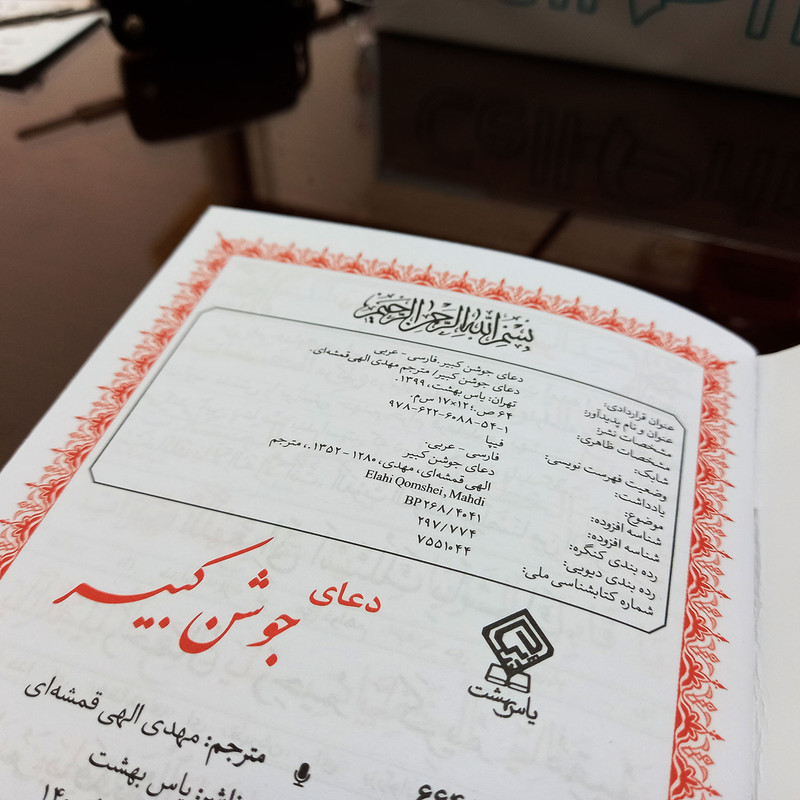 بسم الله الرحمن الرحیم
عنوان قراردادی: دعای جوشن کبیر. فارسی - عربی
عنوان و نام پدیدآور: دعای جوشن کبیر/ مترجم مهدی الهی قمشه‌ای.
مشخصات نشر: تهران: یاس بهشت، ۱۳۹۹.
مشخصات ظاهری: ۶۴ ص.؛ ۱۲×۱۷ س.م.
شابک: ۹۷۸-۶۲۲-۶۰۸۸-۵۴-۱
وضعیت فهرست نویسی: فیپا
یادداشت: فارسی - عربی.
موضوع: دعای جوشن کبیر
شناسه افزوده: الهی قمشه‌ای، مهدی، ۱۲۸۰ - ۱۳۵۲.، مترجم
شناسه افزوده: Elahi Qomshei, Mahdi
رده بندی کنگره: BP۲۶۸/۴۰۴۱
رده بندی دیویی: ۲۹۷/۷۷۴
شماره کتابشناسی ملی: ۷۵۵۱۰۴۴
دعای جوشن کبیر
یاس بهشت
مترجم: مهدی الهی قمشه‌ای
ناشر: یاس بهشت